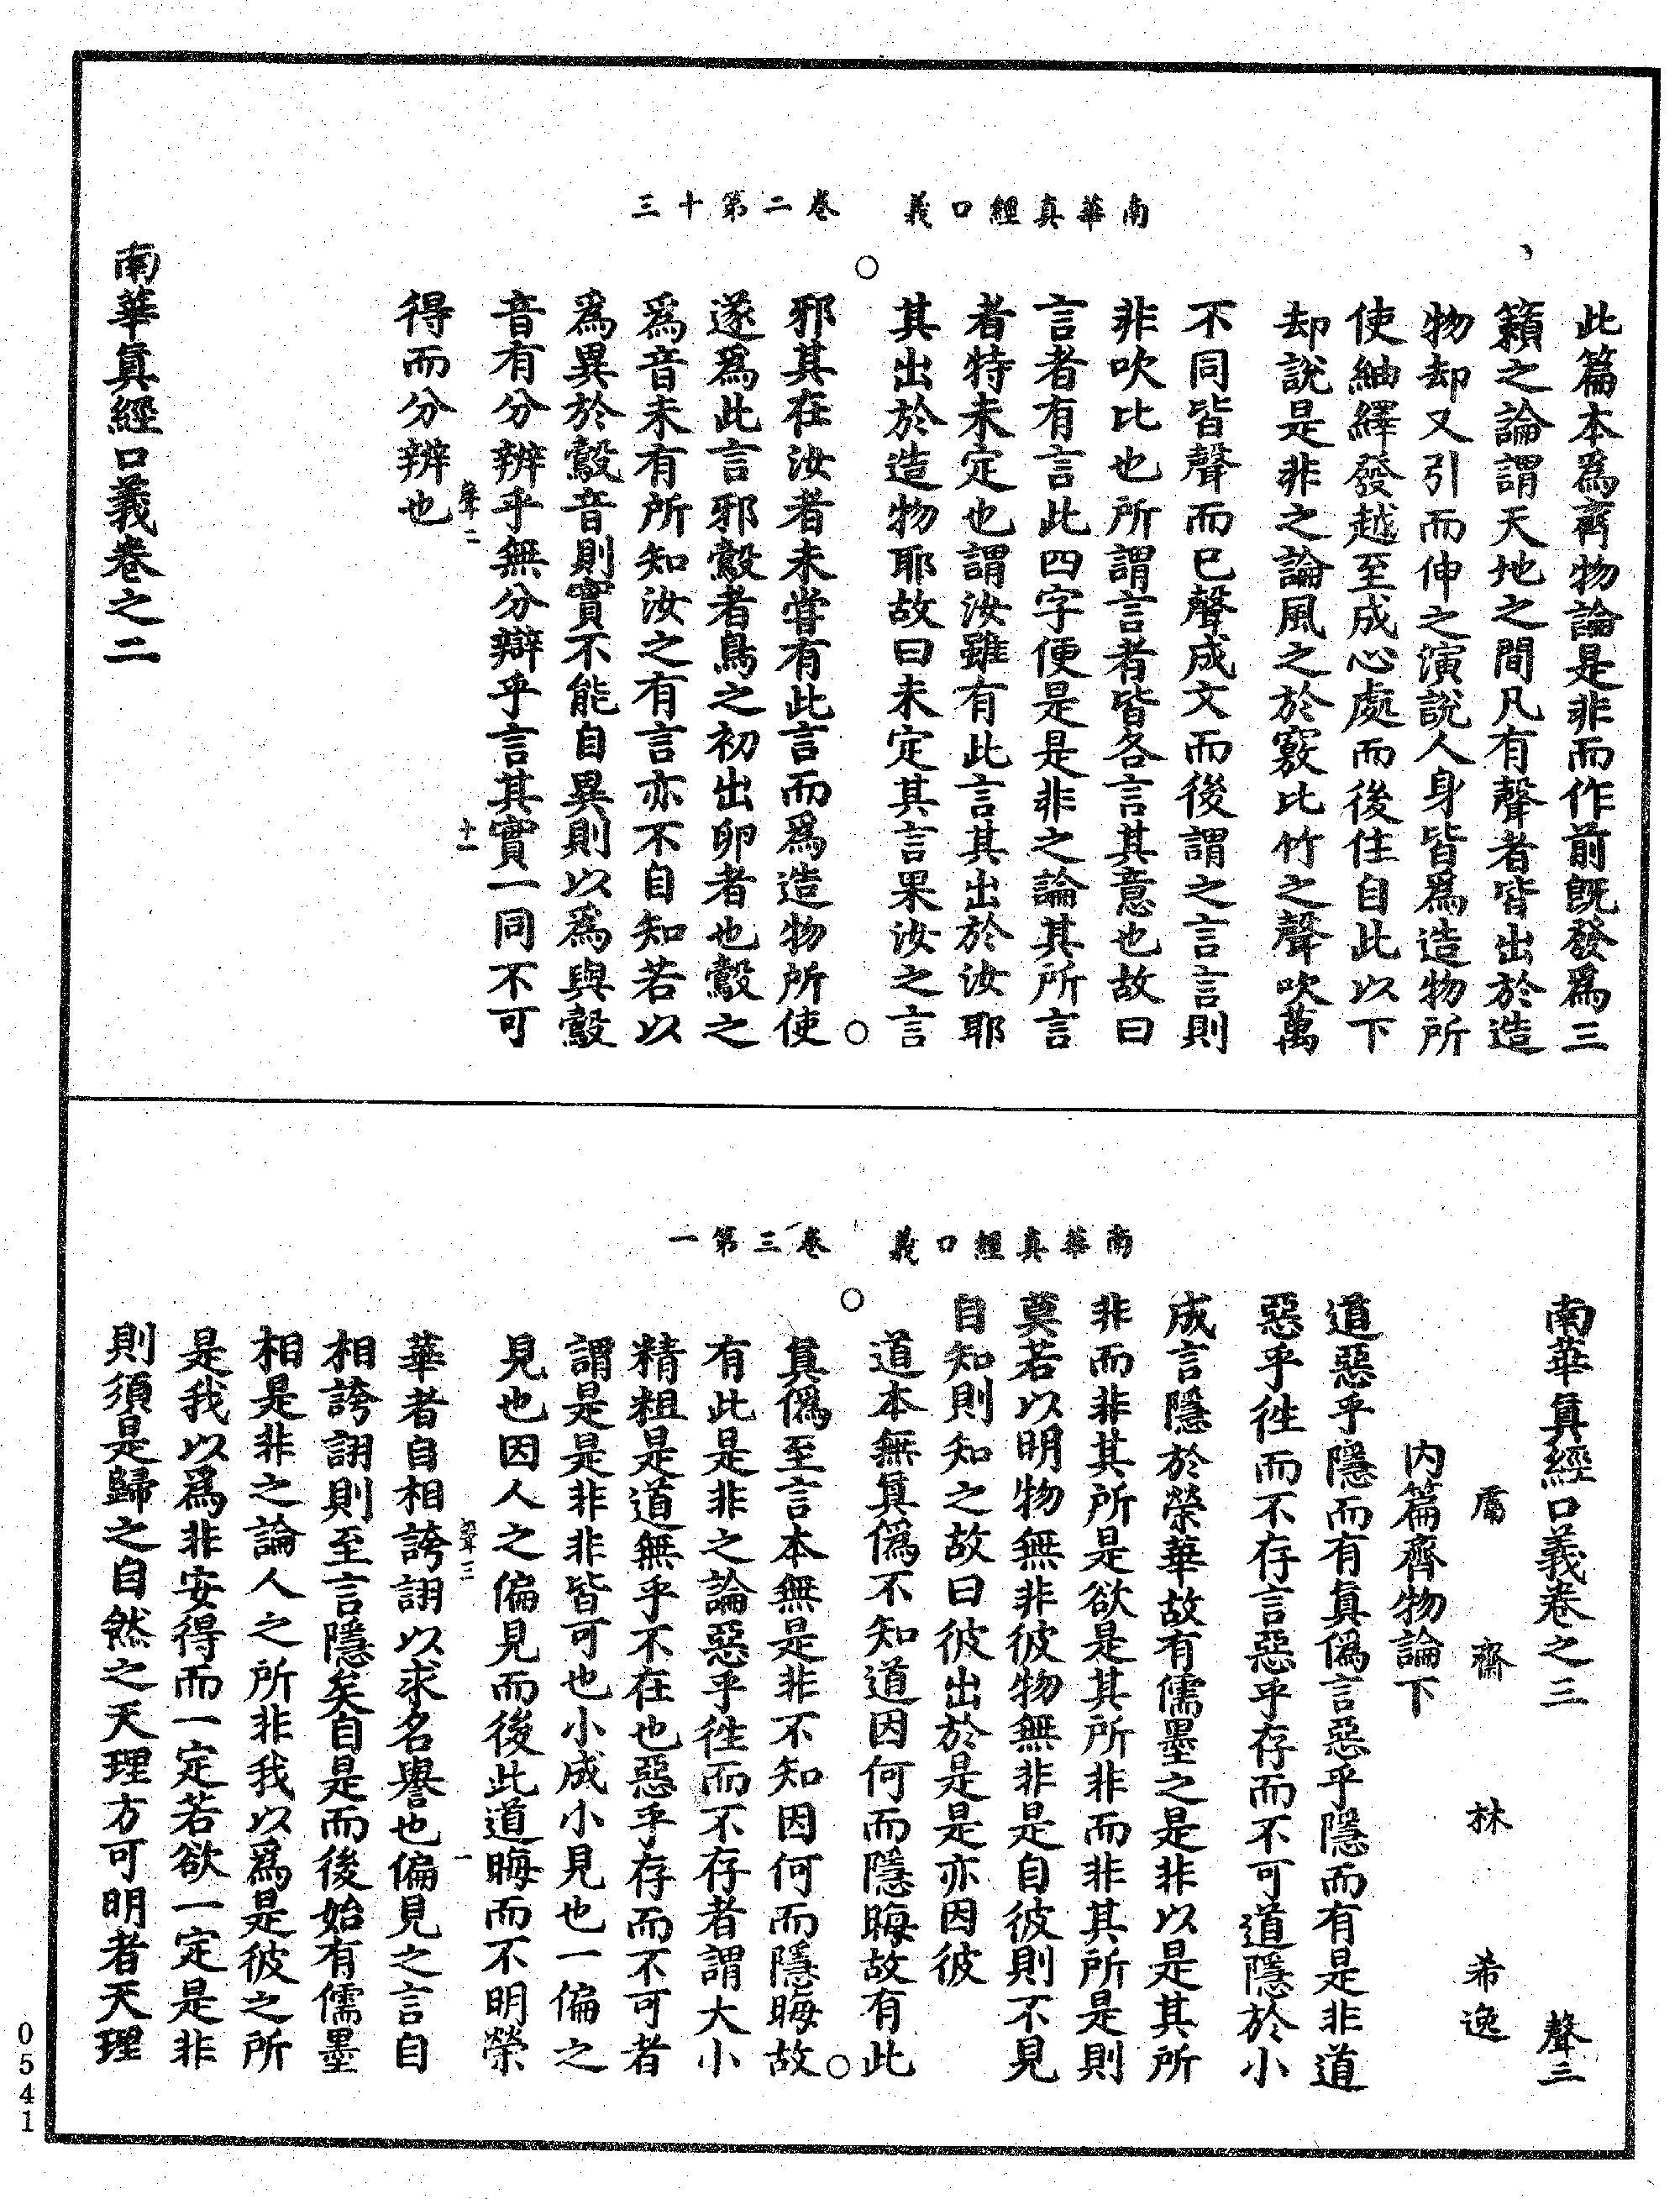 南華真經口義　卷二第十三
此篇本為齊物論是非而作前既發為三
籟之論謂天地之間凡有聲者皆出於造
物却又引而伸之演說人身皆為造物所
使紬繹發越至成心處而後住自此以下
却說是非之論風之於竅比竹之聲吹萬
不同皆聲而已聲成文而後謂之言言則
非吹比也所謂言者皆各言其意也故曰
言者有言此四字便是是非之論其所言
者特未定也謂汝雖有此言其出於汝耶
其出於造物耶故曰未定其言果汝之言
邪其在汝者未嘗有此言而為造物所使
遂為此言邪鷇者鳥之初出卵者也鷇之
為音未有所知汝之有言亦不自知若以
為異於鷇音則實不能自異則以為與鷇
音有分辨乎無分辯乎言其實一同不可
聲二　十一
得而分辨也
南華真經口義卷之二
南華真經口義　卷三第一
南華真經口義卷之三　聲三
鬳齋林希逸
內篇齊物論下
道惡乎隱而有真偽言惡乎隱而有是非道
惡乎徃而不存言惡乎存而不可道隱於小
成言隱於榮華故有儒墨之是非以是其所
非而非其所是欲是其所非而非其所是則
莫若以明物無非彼物無非是自彼則不見
自知則知之故曰彼出於是是亦因彼
道本無真偽不知道因何而隱晦故有此
真偽至言本無是非不知因何而隱晦故
有此是非之論惡乎徃而不存者謂大小
精粗是道無乎不在也惡乎存而不可者
謂是是非非皆可也小成小見也一偏之
見也因人之偏見而後此道晦而不明榮
聲三　一
華者自相誇詡以求名譽也偏見之言自
相誇詡則至言隱矣自是而後始有儒墨
相是非之論人之所非我以為是彼之所
是我以為非安得而一定若欲一定是非
則須是歸之自然之天理方可明者天理
0541